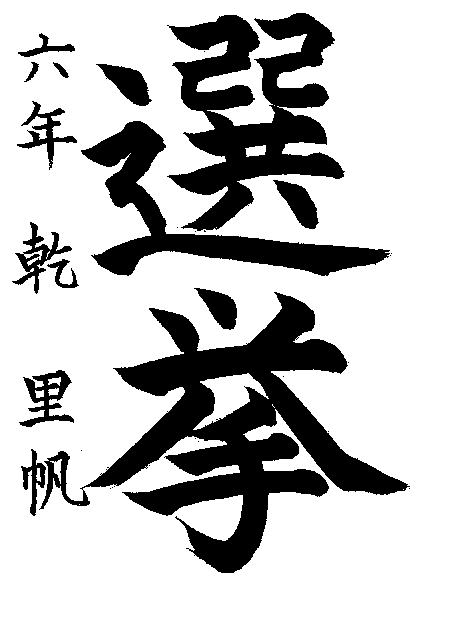 選挙
六年 乾 里帆